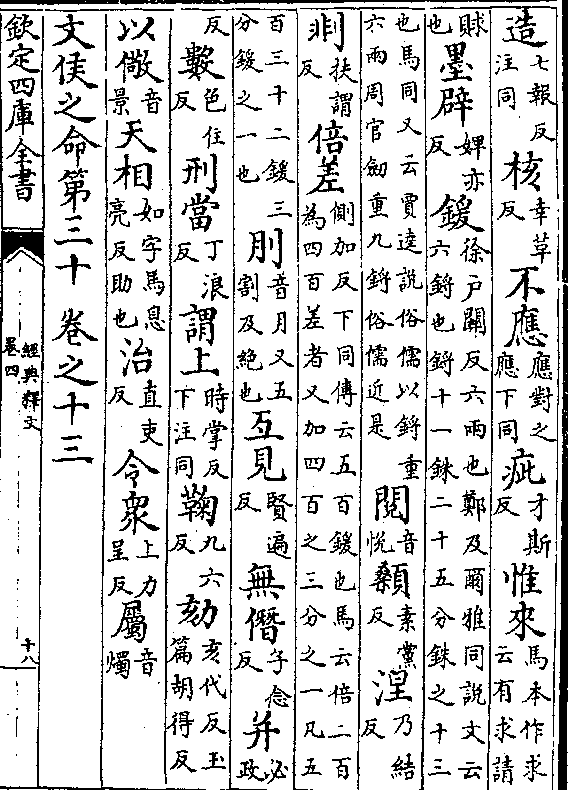 造七報反注同核幸草反不應應對之應下同疵才斯反惟來馬本作求云有求請
賕也墨辟婢亦反鍰徐戶關反六兩也鄭及爾雅同說文云六鋝也鋝十一銖二十五分銖之十三
也馬同又云賈逵說俗儒以鋝重六兩周官劒重九鋝俗儒近是閱音悅顙素黨反涅乃結反
剕扶謂反倍差側加反下同傳云五百鍰也馬云倍二百為四百差者又加四百之三分之一凡五
百三十二鍰三分鍰之一也刖音月又五割及絕也互見賢遍反無僭子念反并必政
反數色住反刑當丁浪反謂上時掌反下注同鞫九六反劾亥代反玉篇胡得反
以儆音景天相如字馬息亮反助也治直吏反令衆上力呈反屬音燭
文侯之命第三十 卷之十三
欽定四庫全書
經典釋文
卷四
十八